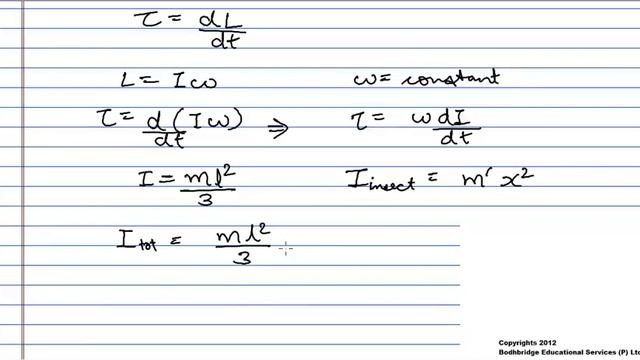 τ = dL/dt
L = Iω ω = constant
τ = d/dt (Iω) ⇒ τ = ω dI/dt
I = ml²/3 I insect = m' x²
I tot = ml²/3
Copyrights 2012
Bodhbridge Educational Services (P) Ltd